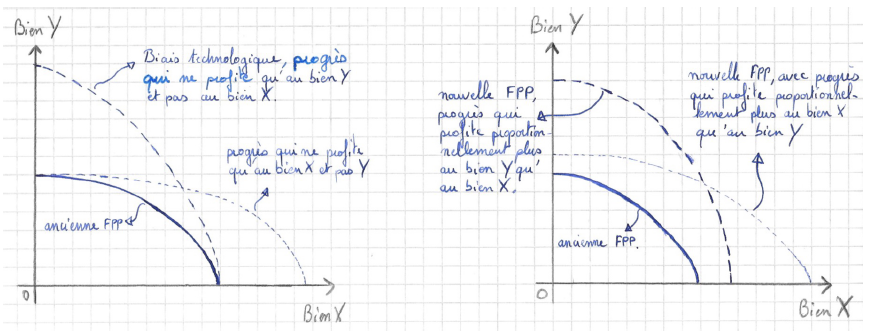 Bien Y
Biais technologique, progrès
qui ne profite qu'au bien Y
et pas au bien X.
progrès qui ne profite
qu'au bien X et pas Y
ancienne FPP
0
Bien X
Bien Y
nouvelle FPP,
progrès qui
profite proportion-
nellement plus
au bien Y qu'
au bien X.
nouvelle FPP, avec progrès
qui profite proportionnel-
lement plus au bien X
qu'au bien Y
ancienne FPP.
0
Bien X